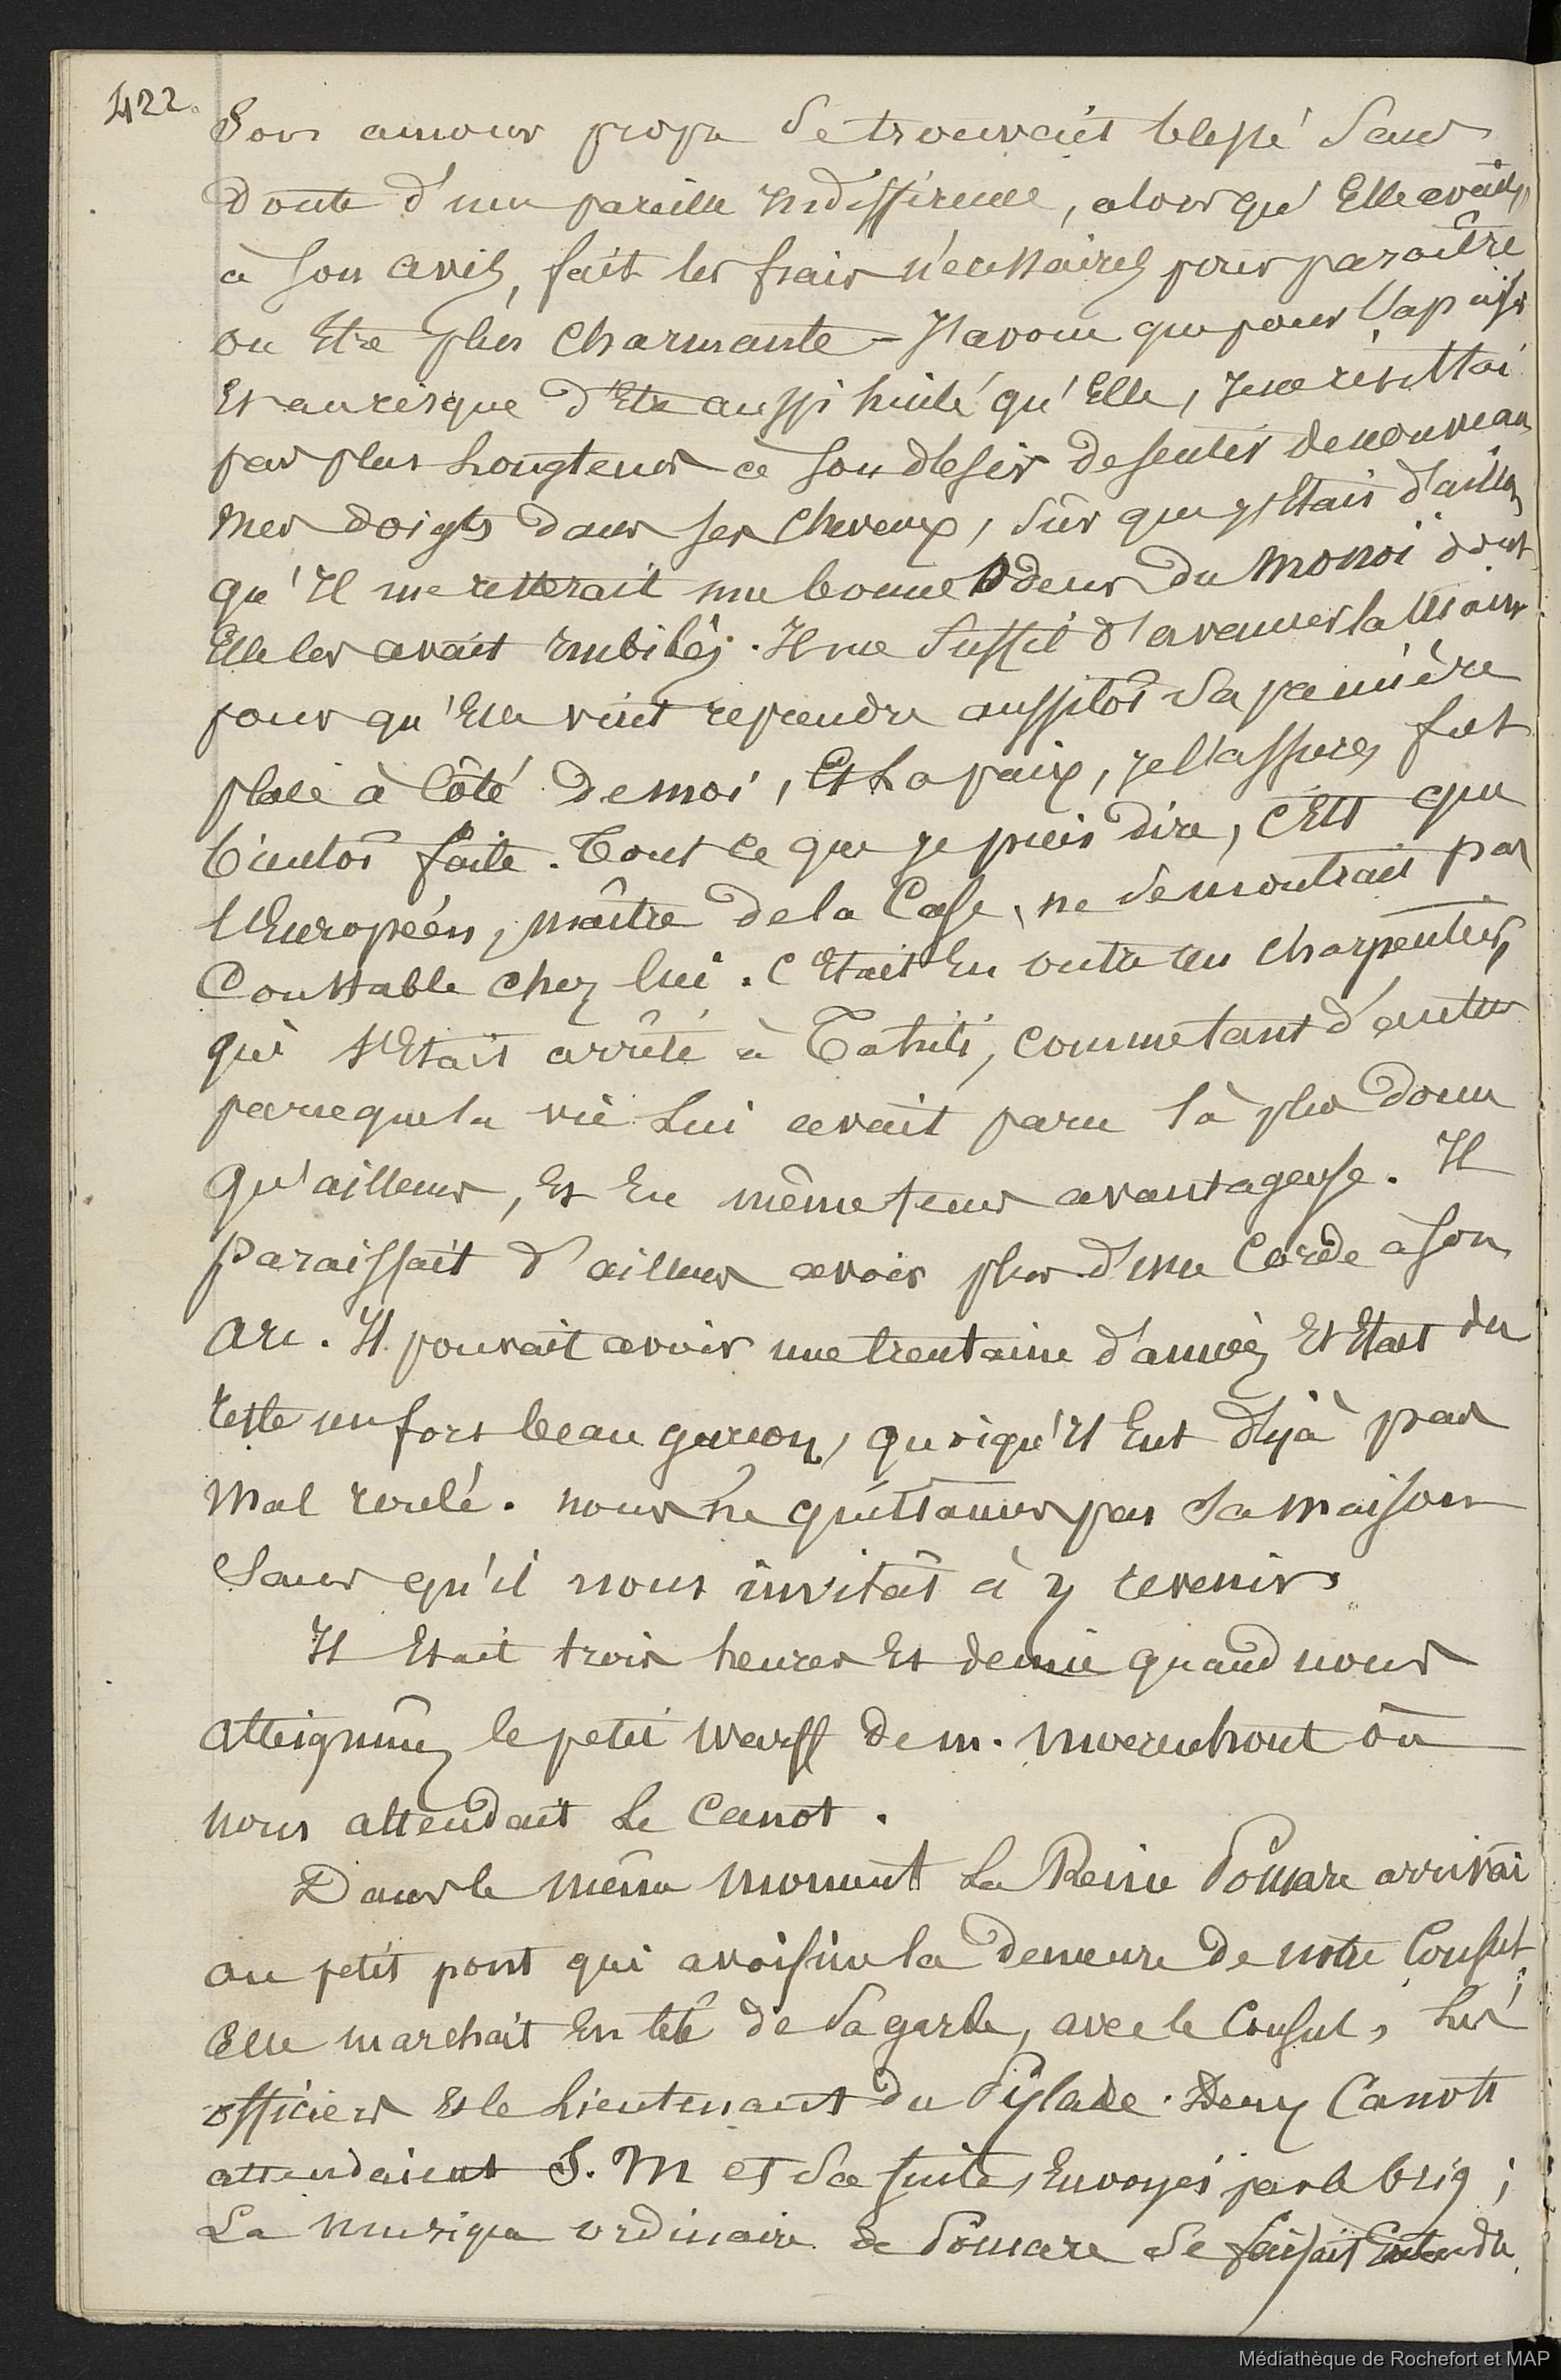 422.
Son amour propre se trouvait blessé sans
doute d'une pareille Indifférence, alors qu'Elle avait,
à son avis, fait les frais nécessaires pour paraître
ou Etre plus Charmante - J'avoue que pour l'apaiser
Et au risque d'Etre aussi huilé qu'Elle, je ne résistai
pas plus Longtems à son désir de sentir de nouveau
mes doigts dans ses Cheveux, sûr que j'Etais d'ailleurs
qu'Il me resterait une bonne Odeur du Monoï dont
Elle les avait Imbibés. Il me suffit d'avancer la Main
pour qu'Elle vint reprendre aussitôt sa première
place à Côté de moi, Et La paix, je l'assure, fut
bientôt faite. Tout ce que je puis dire, c'Est que
l'Européen, maître de la Case, ne se montrait pas
Constable chez lui. C'Etait En outre un charpentier,
qui s'Etait arrêté à Tahiti, comme tant d'autres
parceque la vie Lui avait paru là plus douce
qu'ailleurs, Et En même tems avantageuse. Il
paraissait d'ailleurs avoir plus d'une Corde à son
arc. Il pouvait avoir une trentaine d'années Et Etait du
reste un fort beau garçon, quoiqu'Il Eut déjà pas
mal roulé. nous ne quittames pas sa maison
sans qu'il nous invitât à y revenir.
Il Etait trois heures Et demie quand nous
atteignimes le petit Warff de m. Moerenhout où
nous attendait Le Canot.
Dans le même moment La Reine Pomare arrivait
au petit pont qui avoisine la demeure de notre Consul;
Elle marchait En tête de sa garde, avec le Consul, Les
officiers Et le Lieutenant du Pylade. Deux Canots
attendaient S. M et sa suite, Envoyés par le brig;
La musique ordinaire de Pomare se faisait Entendre
Médiathèque de Rochefort et MAP